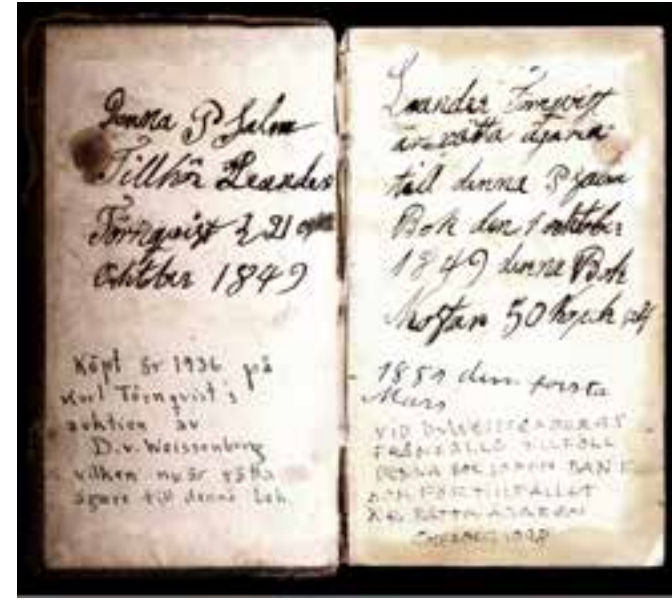 Denna Psalm
Tillhör Leander
Törnqvist d 21
Oktober 1849
Köpt år 1936 på
Karl Törnqvist's
auktion av
D.v. Weissenberg
vilken nu är rätta
ägare till denna bok.
Leander Törnqvist
är rätta ägare
till denna Psalm
Bok den 1 oktober
1849 denna Bok
Kostar 50 Kopek
den första
Mars
VID
TILLFÖLL
DENNA BOK
OCH FÖR TILLFÄLLET
ÄR RÄTTA ÄGAREN